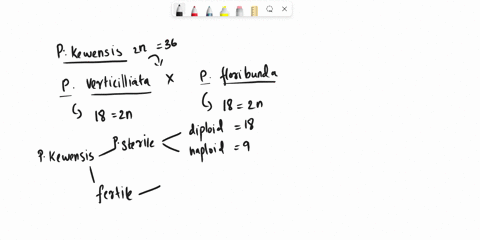 P. Kewensis 2n = 36
P. verticilliata × P. floribunda
18 = 2n 18 = 2n
diploid = 18
P. Kewensis P. sterile
haploid = 9
fertile